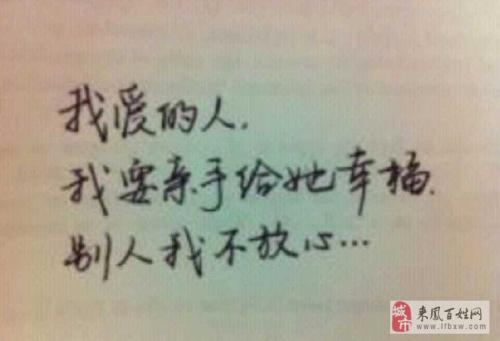 我爱的人.
我要亲手给她幸福.
别人我不放心…
城市
来鳳百姓网
www.lfbxw.com